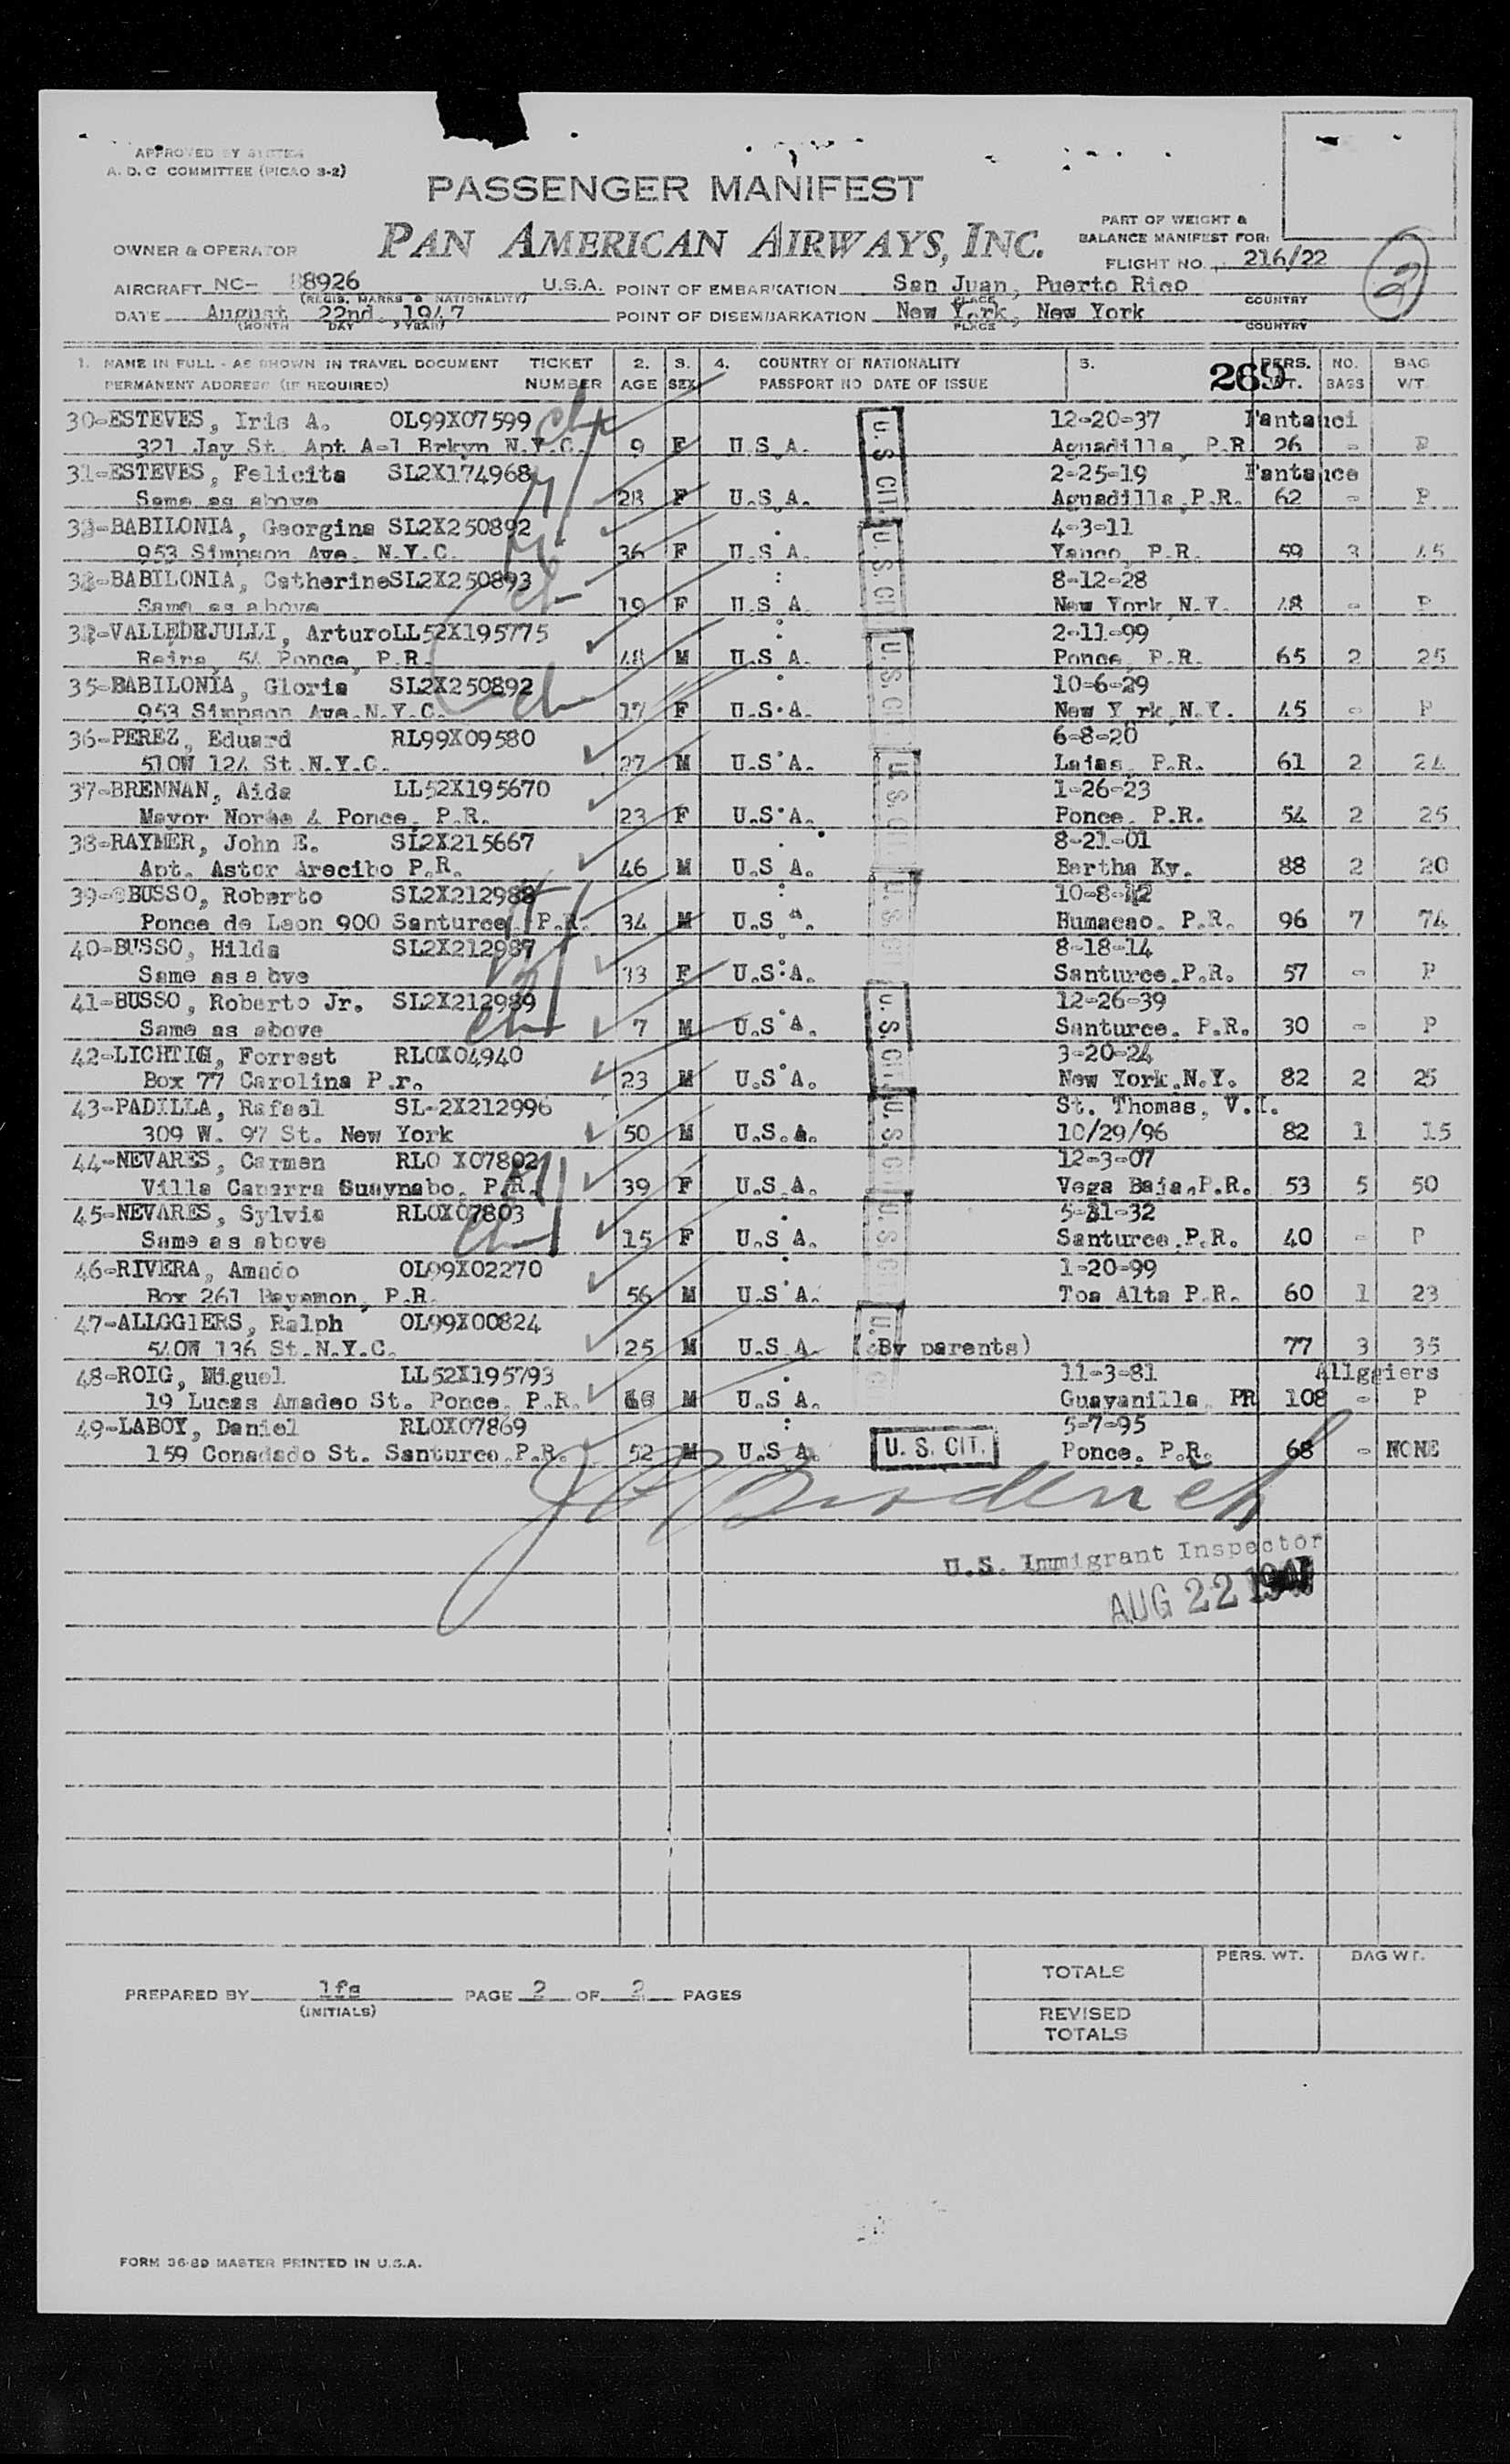 APPROVED BY SYSTEM
A. D. C COMMITTEE (PICAO 3-2)
PASSENGER MANIFEST
PAN AMERICAN AIRWAYS, INC.
OWNER & OPERATOR
PART OF WEIGHT &
BALANCE MANIFEST FOR:
FLIGHT NO. 216/22
2
AIRCRAFT NC- 88926 U.S.A. POINT OF EMBARKATION San Juan, Puerto Rico
(REGIS. MARKS & NATIONALITY) PLACE COUNTRY
DATE August 22nd. 1947 POINT OF DISEMBARKATION New York, New York
(MONTH DAY YEAR) PLACE COUNTRY
1. NAME IN FULL - AS SHOWN IN TRAVEL DOCUMENT TICKET 2. 3. 4. COUNTRY OF NATIONALITY 5. PERS. NO. BAG
PERMANENT ADDRESS (IF REQUIRED) NUMBER AGE SEX PASSPORT NO DATE OF ISSUE 269 WT. BAGS WT.
30-ESTEVES, Iris A. OL99X07599 12-20-37 Fantauci
321 Jay St. Apt A-1 Brkyn N.Y.C. 9 F U.S.A. Aguadilla, P.R 26 - P
31-ESTEVES, Felicita SL2X174968 2-25-19 Fantauce
Same as above 28 F U.S.A. Aguadilla,P.R. 62 - P
BABILONIA, Georgina SL2X250892 4-3-11
953 Simpson Ave. N.Y.C. 36 F U.S.A. Yauco, P.R. 59 3 45
BABILONIA, CatherineSL2X250893 8-12-28
Same as above 19 F U.S.A. New York,N.Y. 48 - P
VALLEDEJULLI, ArturoLL52X195775 2-11-99
Reina, 54 Ponce, P.R. 48 M U.S.A. Ponce, P.R. 65 2 25
35-BABILONIA, Gloria SL2X250892 10-6-29
953 Simpson Ave.N.Y.C. 17 F U.S.A. New Y rk,N.Y. 45 - P
36-PEREZ, Eduard RL99X09580 6-8-20
510W 124 St.N.Y.C. 27 M U.S.A. Lajas, P.R. 61 2 24
37-BRENNAN, Aida LL52X195670 1-26-23
Mayor Norte 4 Ponce, P.R. 23 F U.S.A. Ponce. P.R. 54 2 25
38-RAYMER, John E. SL2X215667 8-21-01
Apt. Astor Arecibo P.R. 46 M U.S.A. Bertha Ky. 88 2 20
39-BUSSO, Roberto SL2X212988 10-8-12
Ponce de Leon 900 Santurce, P.R. 34 M U.S.A. Humacao. P.R. 96 7 74
40-BUSSO, Hilda SL2X212987 8-18-14
Same as a bve 33 F U.S.A. Santurce.P.R. 57 - P
41-BUSSO, Roberto Jr. SL2X212989 12-26-39
Same as above 7 M U.S.A. Santurce. P.R. 30 - P
42-LICHTIG, Forrest RLOX04940 3-20-24
Box 77 Carolina P.r. 23 M U.S.A. New York.N.Y. 82 2 25
43-PADILLA, Rafael SL-2X212996 St. Thomas, V.I.
309 W. 97 St. New York 50 M U.S.A. 10/29/96 82 1 15
44-NEVARES, Carmen RLO X07802 12-3-07
Villa Caparra Guaynabo. P.R. 39 F U.S.A. Vega Baja.P.R. 53 5 50
45-NEVARES, Sylvia RLOX07803 5-21-32
Same as above 15 F U.S.A. Santurce.P.R. 40 - P
46-RIVERA, Amado OL99X02270 1-20-99
Box 261 Bayamon, P.R. 56 M U.S.A. Toa Alta P.R. 60 1 23
47-ALLGGIERS, Ralph OL99X00824
540W 136 St.N.Y.C. 25 M U.S.A. (By parents) 77 3 35
48-ROIG, Miguel LL52X195793 11-3-81 Allggiers
19 Lucas Amadeo St. Ponce. P.R. 66 M U.S.A. Guayanilla. PR 108 - P
49-LABOY, Daniel RLOX07869 5-7-95
159 Condado St. Santurce.P.R. 52 M U.S.A. U. S. CIT. Ponce. P.R. 68 - NONE
U.S. Immigrant Inspector
AUG 22 1947
PERS. WT. BAG WT.
TOTALS
PREPARED BY lfs PAGE 2 OF 2 PAGES
(INITIALS)
REVISED
TOTALS
FORM 36-89 MASTER PRINTED IN U.S.A.